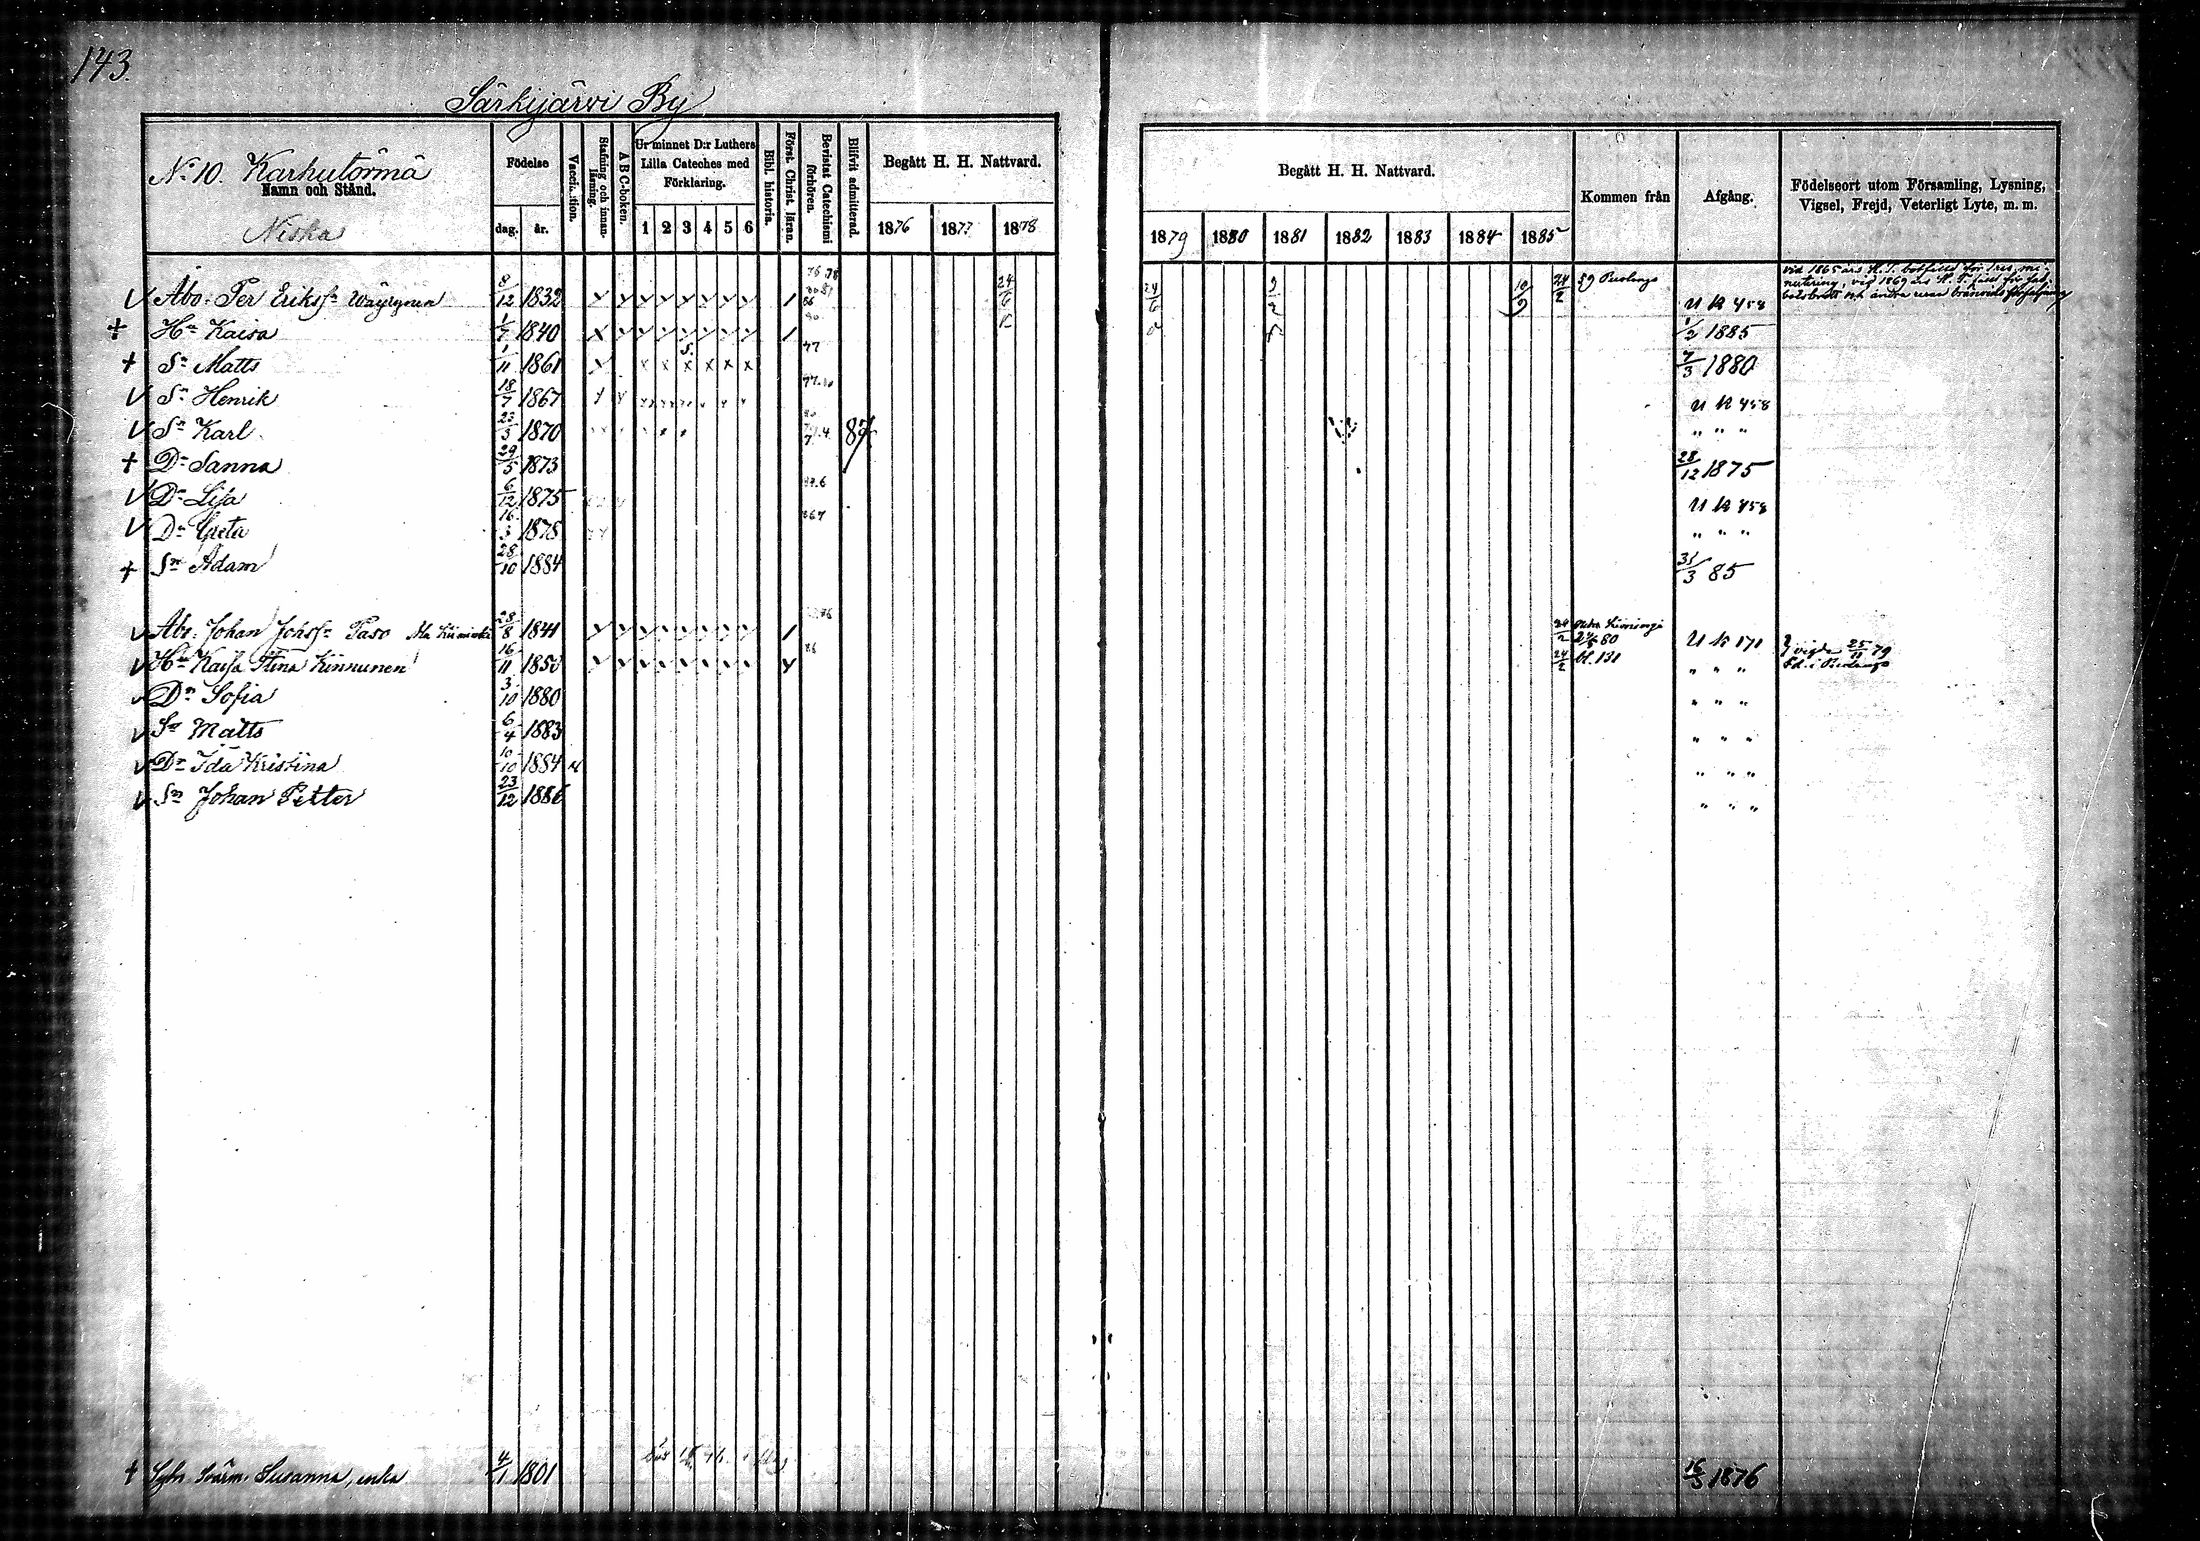 143.
Särkijärvi By
No 10. Karhutörmä
Namn och Stånd.
Niska
Födelse
dag. år.
Vaccination.
Stafning och innanläsning.
A B C-boken.
Ur minnet D:r Luthers
Lilla Cateches med
Förklaring.
1 2 3 4 5 6
Bibl. historia.
Först. Christ. läran.
Bevistat Catechismi förhören.
Blifvit admitterad.
Begått H. H. Nattvard.
1876 1877 1878
Begått H. H. Nattvard.
1879 1880 1881 1882 1883 1884 1885
Kommen från
Afgång.
Födelseort utom Församling, Lysning,
Vigsel, Frejd, Veterligt Lyte, m. m.
Abo. Per Erikss. Wäyrynen 8/12 1832 24/6 24/6 24/2 U K 458
Hu Kaisa 1/7 1840 1/2 1885
Sn Matts 1/11 1861 7/3 1880
Sn Henrik 18/7 1867 U K 458
Sn Karl 23/3 1870 87 " " "
Dr Sanna 29/5 1873 28/12 1875
Dr Lisa 6/12 1875 U K 458
Dr Greta 16/3 1878 " " "
Sn Adam 28/10 1884 31/3 85
Abo. Johan Johss. Taso 28/8 1841 24/2 80 U K 171 vigde 25/11 79
Hu Kaisa Stina Kinnunen 16/11 1850 24/2 bl. 131 " " "
Dr Sofia 3/10 1880 " " "
Sn Matts 6/4 1883 " " "
Dr Ida Kristina 10/10 1884 " " "
Sn Johan Petter 23/12 1886 " " "
Svärm. Susanna, enka 4/1 1801 16/5 1876